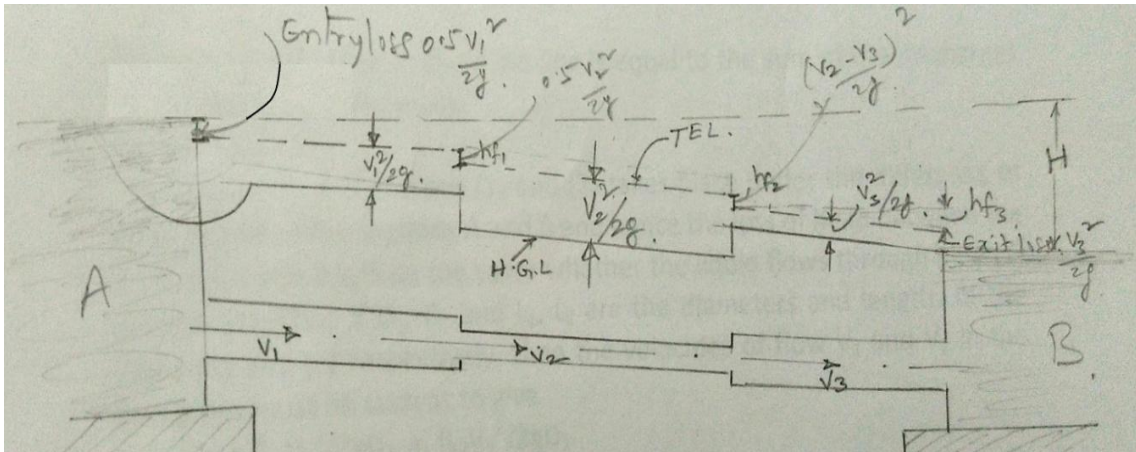 Entry loss 0.5 V₁²/2g.
0.5 V₂²/2g
(V₂-V₃)²/2g.
H
TEL.
hf₁
V₁²/2g.
V₂²/2g.
hf₂
V₃²/2g.
hf₃.
Exit loss V₃²/2g.
H.G.L
A
B.
V₁
V₂
V₃